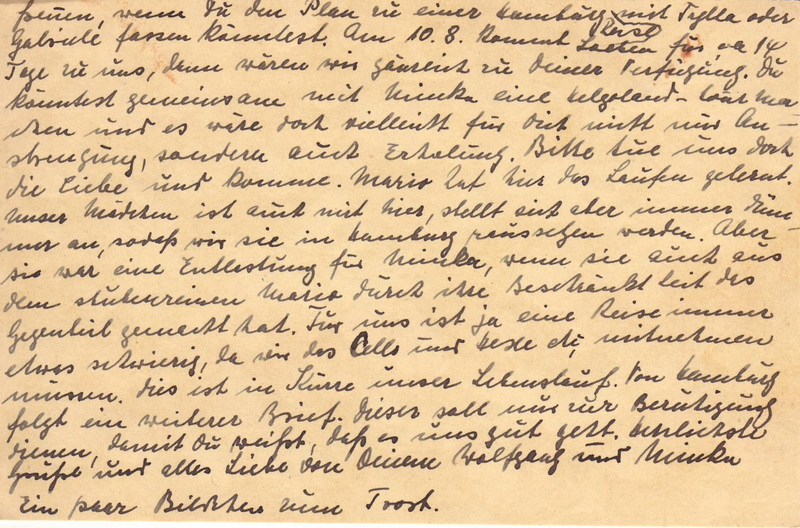 freuen, wenn Du den Plan zu einer Hamburg mit Tylla oder
Reise
Gabriele fassen könntest. Am 10. 8. kommt für ca 14
Tage zu uns, dann wären wir gänzlich zu Deiner Verfügung. Du
könntest gemeinsam mit Minka eine Helgoland-Tour ma-
chen und es wäre doch vielleicht für Dich nicht nur An-
strengung, sondern auch Erholung. Bitte tue uns doch
die Liebe und komme. Mario hat hier das Laufen gelernt.
Unser Mädchen ist auch mit hier, stellt sich aber immer düm-
mer an, sodaß wir sie in Hamburg raussetzen werden. Aber
sie war eine Entlastung für Minka, wenn sie auch aus
dem stubenreinen Mario durch ihre Beschränktheit das
Gegenteil gemacht hat. Für uns ist ja eine Reise immer
etwas schwierig, da wir das Cello und etc, mitnehmen
müssen. Dies ist in Kürze unser Lebenslauf. Von Hamburg
folgt ein weiterer Brief. Dieser soll nur zur Beruhigung
dienen, damit Du weißt, daß es uns gut geht. Herzlichste
Grüße und alles Liebe von Deinem Wolfgang und Minka
Ein paar Bildchen zum Trost.